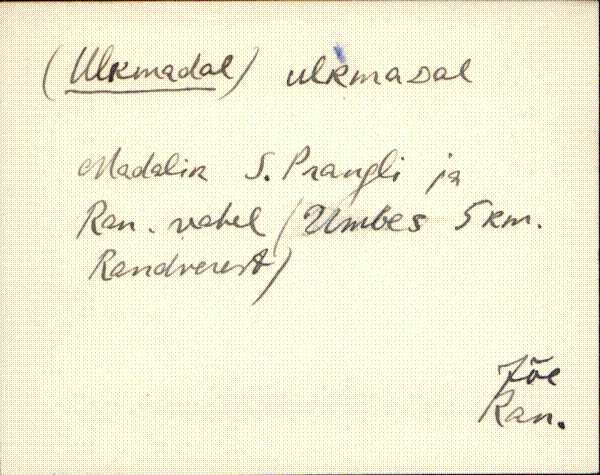 (Ulkmadal) ulkmadal
Madalik S. Prangli ja
Ran. vahel (Umbes 5 km.
Randverest)
Jõe
Ran.